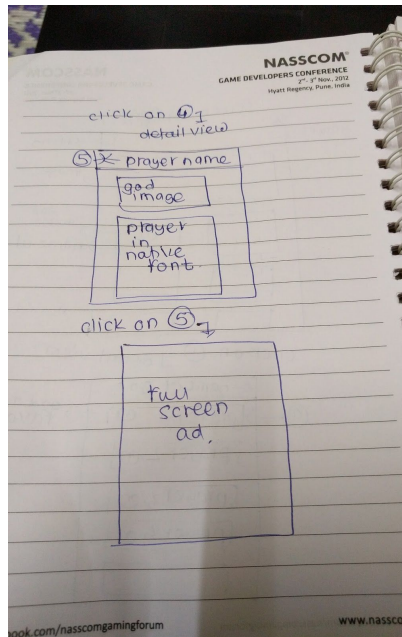 NASSCOM®
GAME DEVELOPERS CONFERENCE
2nd - 3rd Nov., 2012
Hyatt Regency, Pune, India
click on ④
detail view
⑤ ← prayer name
god
image
prayer
in
native
font
click on ⑤
full
screen
ad.
ook.com/nasscomgamingforum
www.nassco